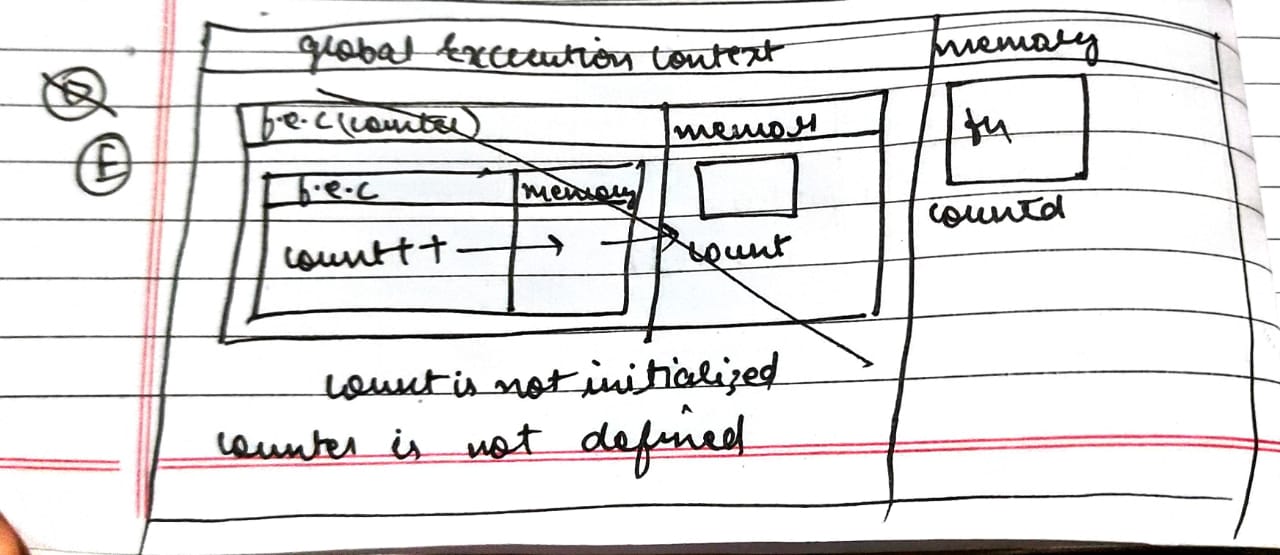 global Execution Context memory
f.e.c (counter) memory
fn
E
f.e.c memory
count++
count
countd
count is not initialized
counter is not defined